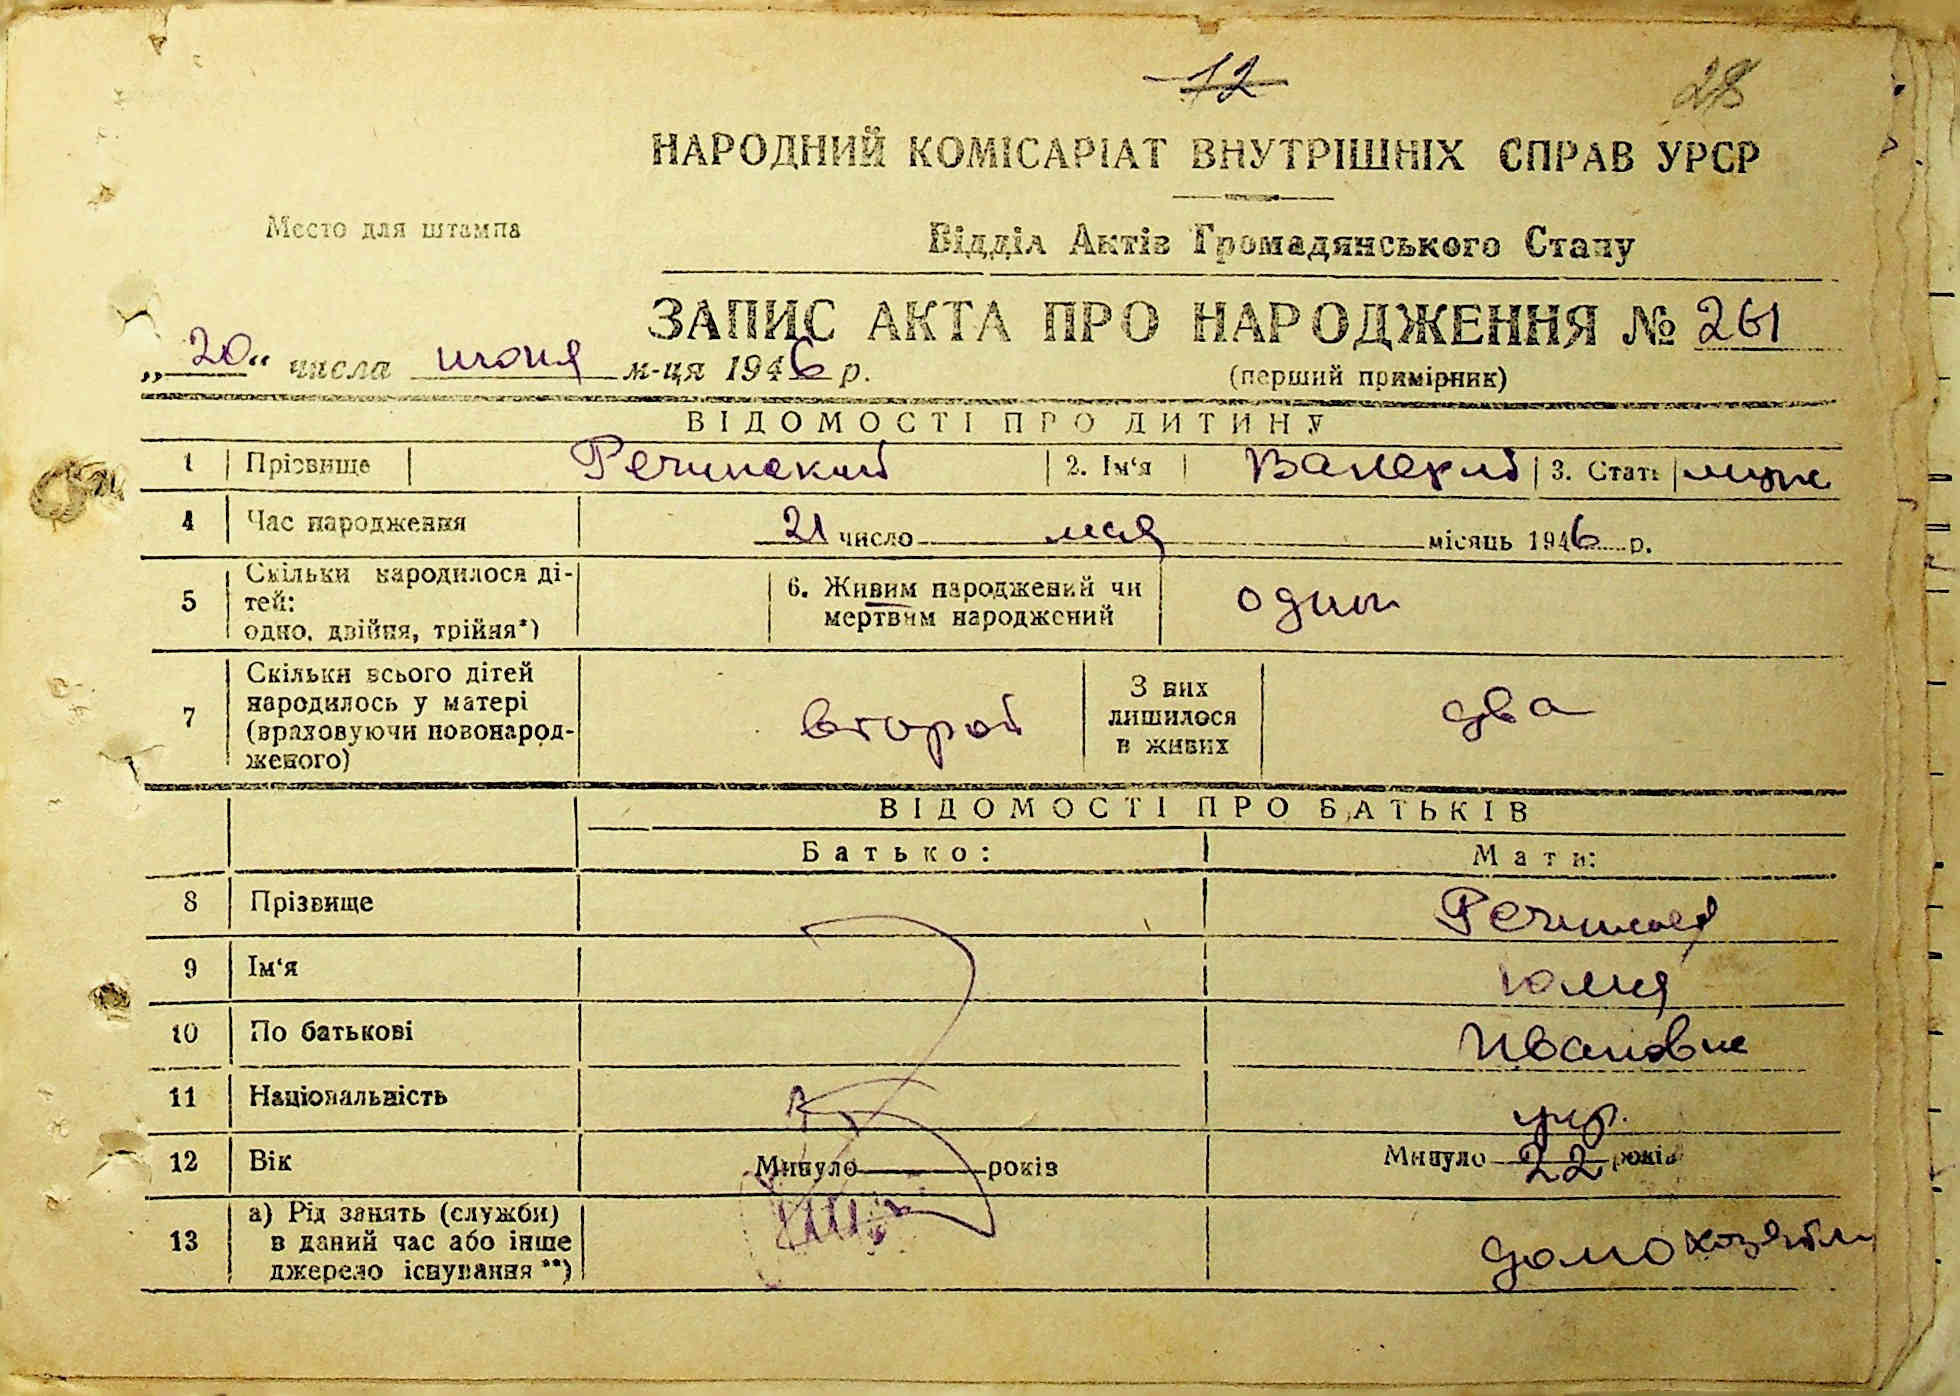 12
28
НАРОДНИЙ КОМІСАРІАТ ВНУТРІШНІХ СПРАВ УРСР
Место для штампа
Відділ Актів Громадянського Стану
ЗАПИС АКТА ПРО НАРОДЖЕННЯ № 261
„20“ числа июня м-ця 1946 р.
(перший примірник)
ВІДОМОСТІ ПРО ДИТИНУ
1 Прізвище Речинский 2. Ім‘я Валерий 3. Стать муж
4 Час народження 21 число мая місяць 1946 р.
5 Скільки народилося ді-
тей:
одно, двійня, трійня*)
6. Живим народжений чи
мертвим народжений
один
7 Скільки всього дітей
народилось у матері
(враховуючи новонарод-
женого)
второй
З них
лишилося
в живих
два
ВІДОМОСТІ ПРО БАТЬКІВ
Батько: Мати:
8 Прізвище
9 Ім‘я Юлия
10 По батькові Ивановна
11 Національність укр.
12 Вік Минуло років Минуло 22 років
13 а) Рід занять (служби)
в даний час або інше
джерело існування **)